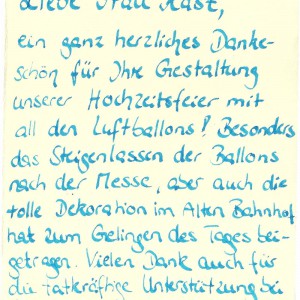 Liebe Frau Kast,
ein ganz herzliches Danke-
schön für Ihre Gestaltung
unserer Hochzeitsfeier mit
all den Luftballons! Besonders
das Steigenlassen der Ballons
nach der Messe, aber auch die
tolle Dekoration im Alten Bahnhof
hat zum Gelingen des Tages bei-
getragen. Vielen Dank auch für
die tatkräftige Unterstützung bei